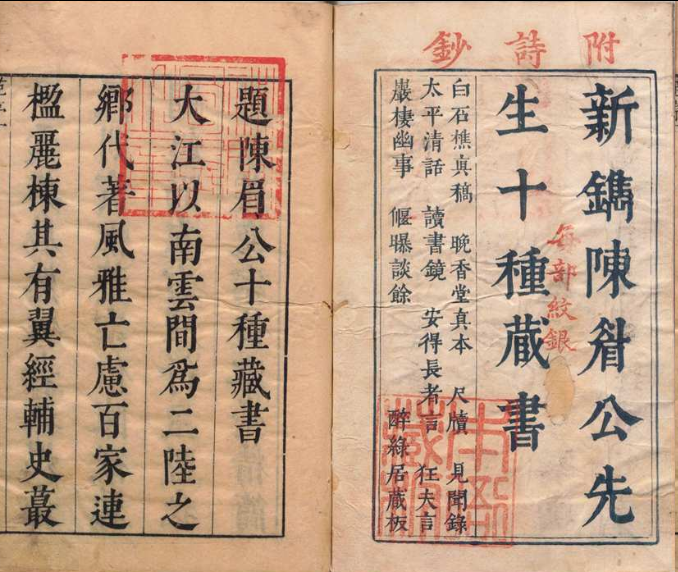 附詩鈔
新鐫陳眉公先
生十種藏書
每部紋銀
白石樵真稿 晚香堂真本 尺牘 見聞錄
太平清話 讀書鏡 安得長者言 狂夫言
巖棲幽事 偃曝談餘 醉綠居藏板
題陳眉公十種藏書
大江以南雲間為二陸之
鄉代著風雅亡慮百家連
楹麗棟其有翼經輔史蕞